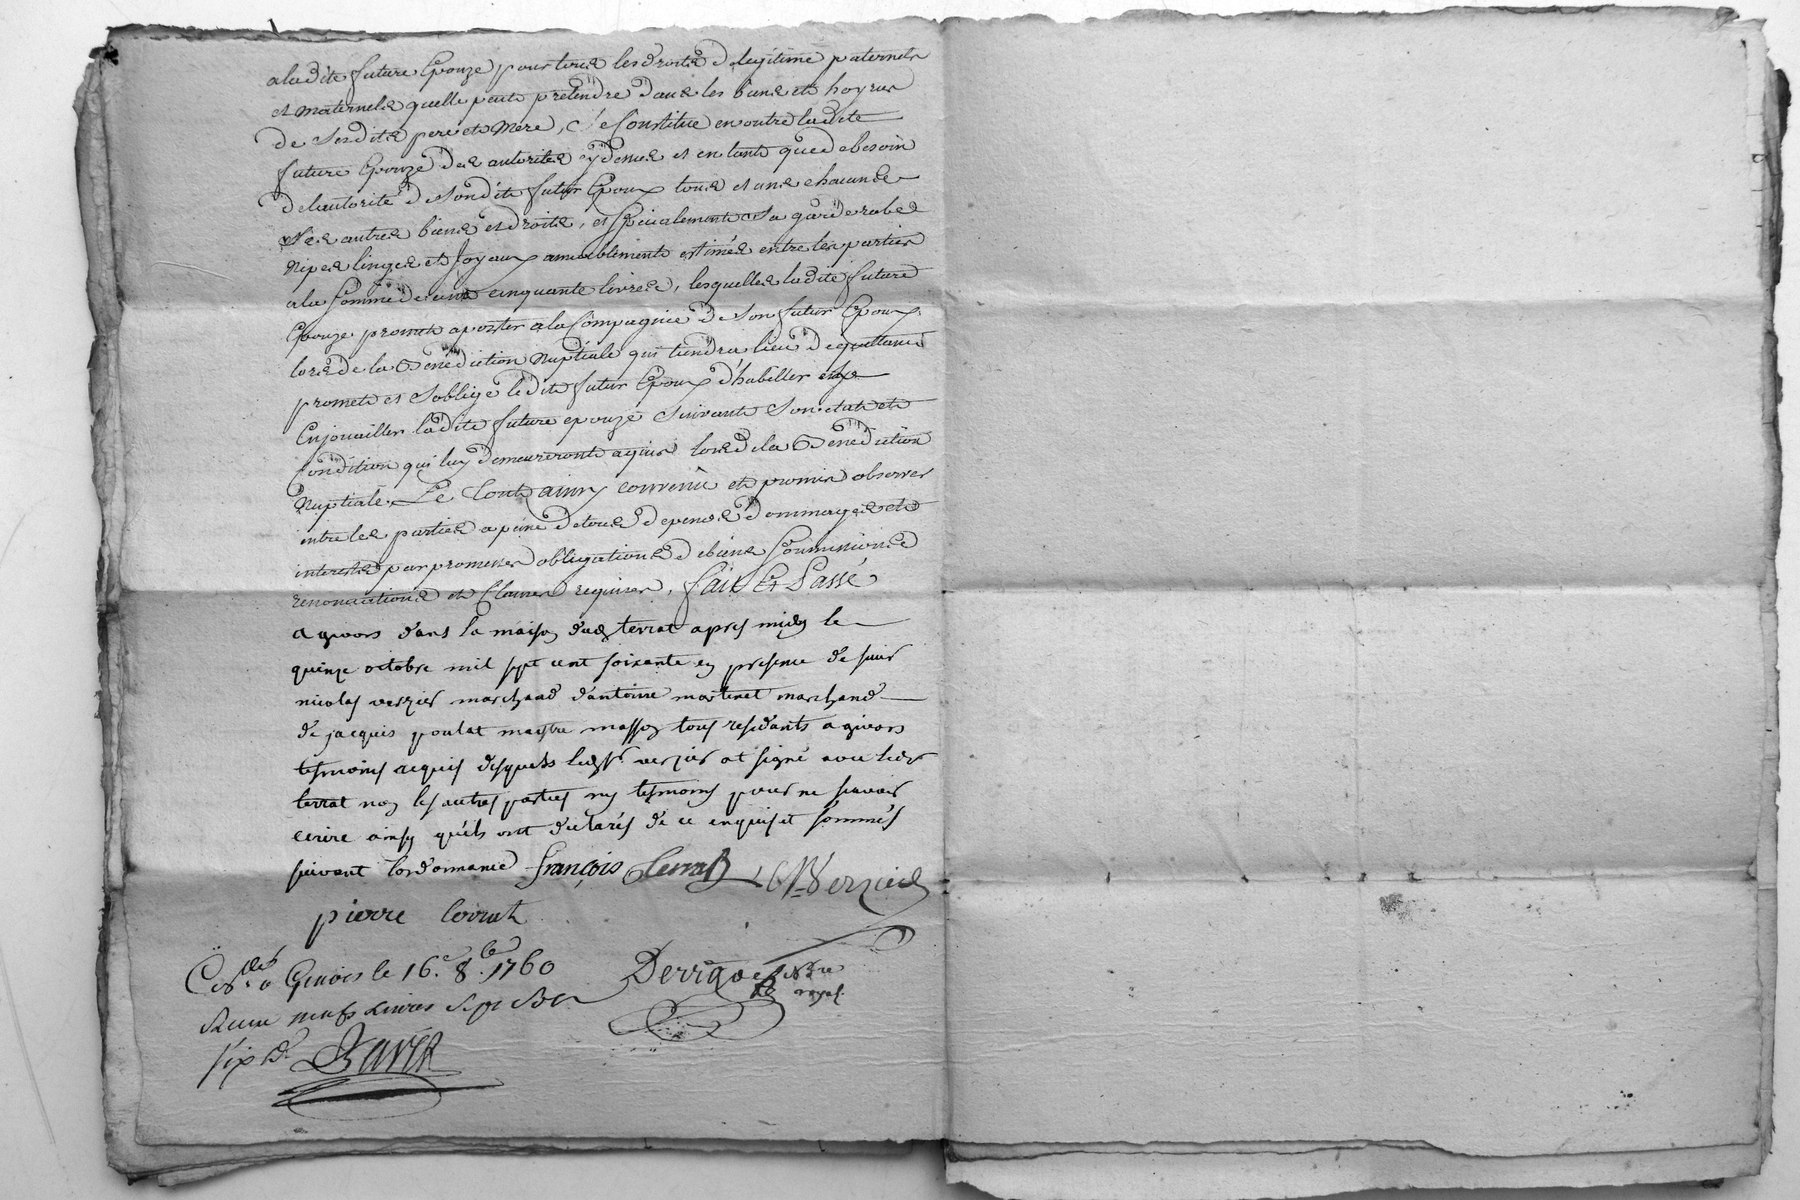 a ladite future Epouze pour tous les droits de legitime paternels
et maternels quelle peut pretendre dans les biens et hoyries
de sesdits pere et mere, se Constitue en outre ladite
future Epouze des autorités sydenus et en tant que de besoin
de lautorité de sondit futur Epoux tous et uns chacuns
ses autres biens et droits, et specialement sa garderobe
nipes linges et Joyaux amiablement estimés entre les parties
a la somme de cent cinquante livres, lesquelles ladite future
Epouze promet aporter a la Compagnie de son futur Epoux
lors de la Benediction Nuptiale qui tiendra lieu de quittance
promet et soblige ledit futur Epoux d'habiller et
Enjouailler ladite future epouze suivant son etat et
Condition qui luy demeureront aquis lors de la Benediction
Nuptiale. Le tout ainsy convenu et promis observer
entre les parties a peine de tous depens dommages et
interests par promesses obligations de biens Soumissions
renonciations et Clauses requises, fait Et Passé
a givors dans la maison dud. terrat apres midy le
quinze octobre mil sept cent soixante en presence de sieur
nicolas verzier marchand d'antoine martinet marchand
de jacques poulat maitre masson tous residants a givors
tesmoins requis desquels led. sr verzier at signé avec lesd.
terrat non les autres parties ny tesmoins pour ne sçavoir
ecrire ainsy quils ont declarés de ce enquis et sommés
suivant lordonnance françois terrat N Verzier
pierre terrat
Con.lé à Givors le 16.e 8.bre 1760
Recu neuf Livres sept sols
six d. Bavet
Derrigoe Nre
royal.